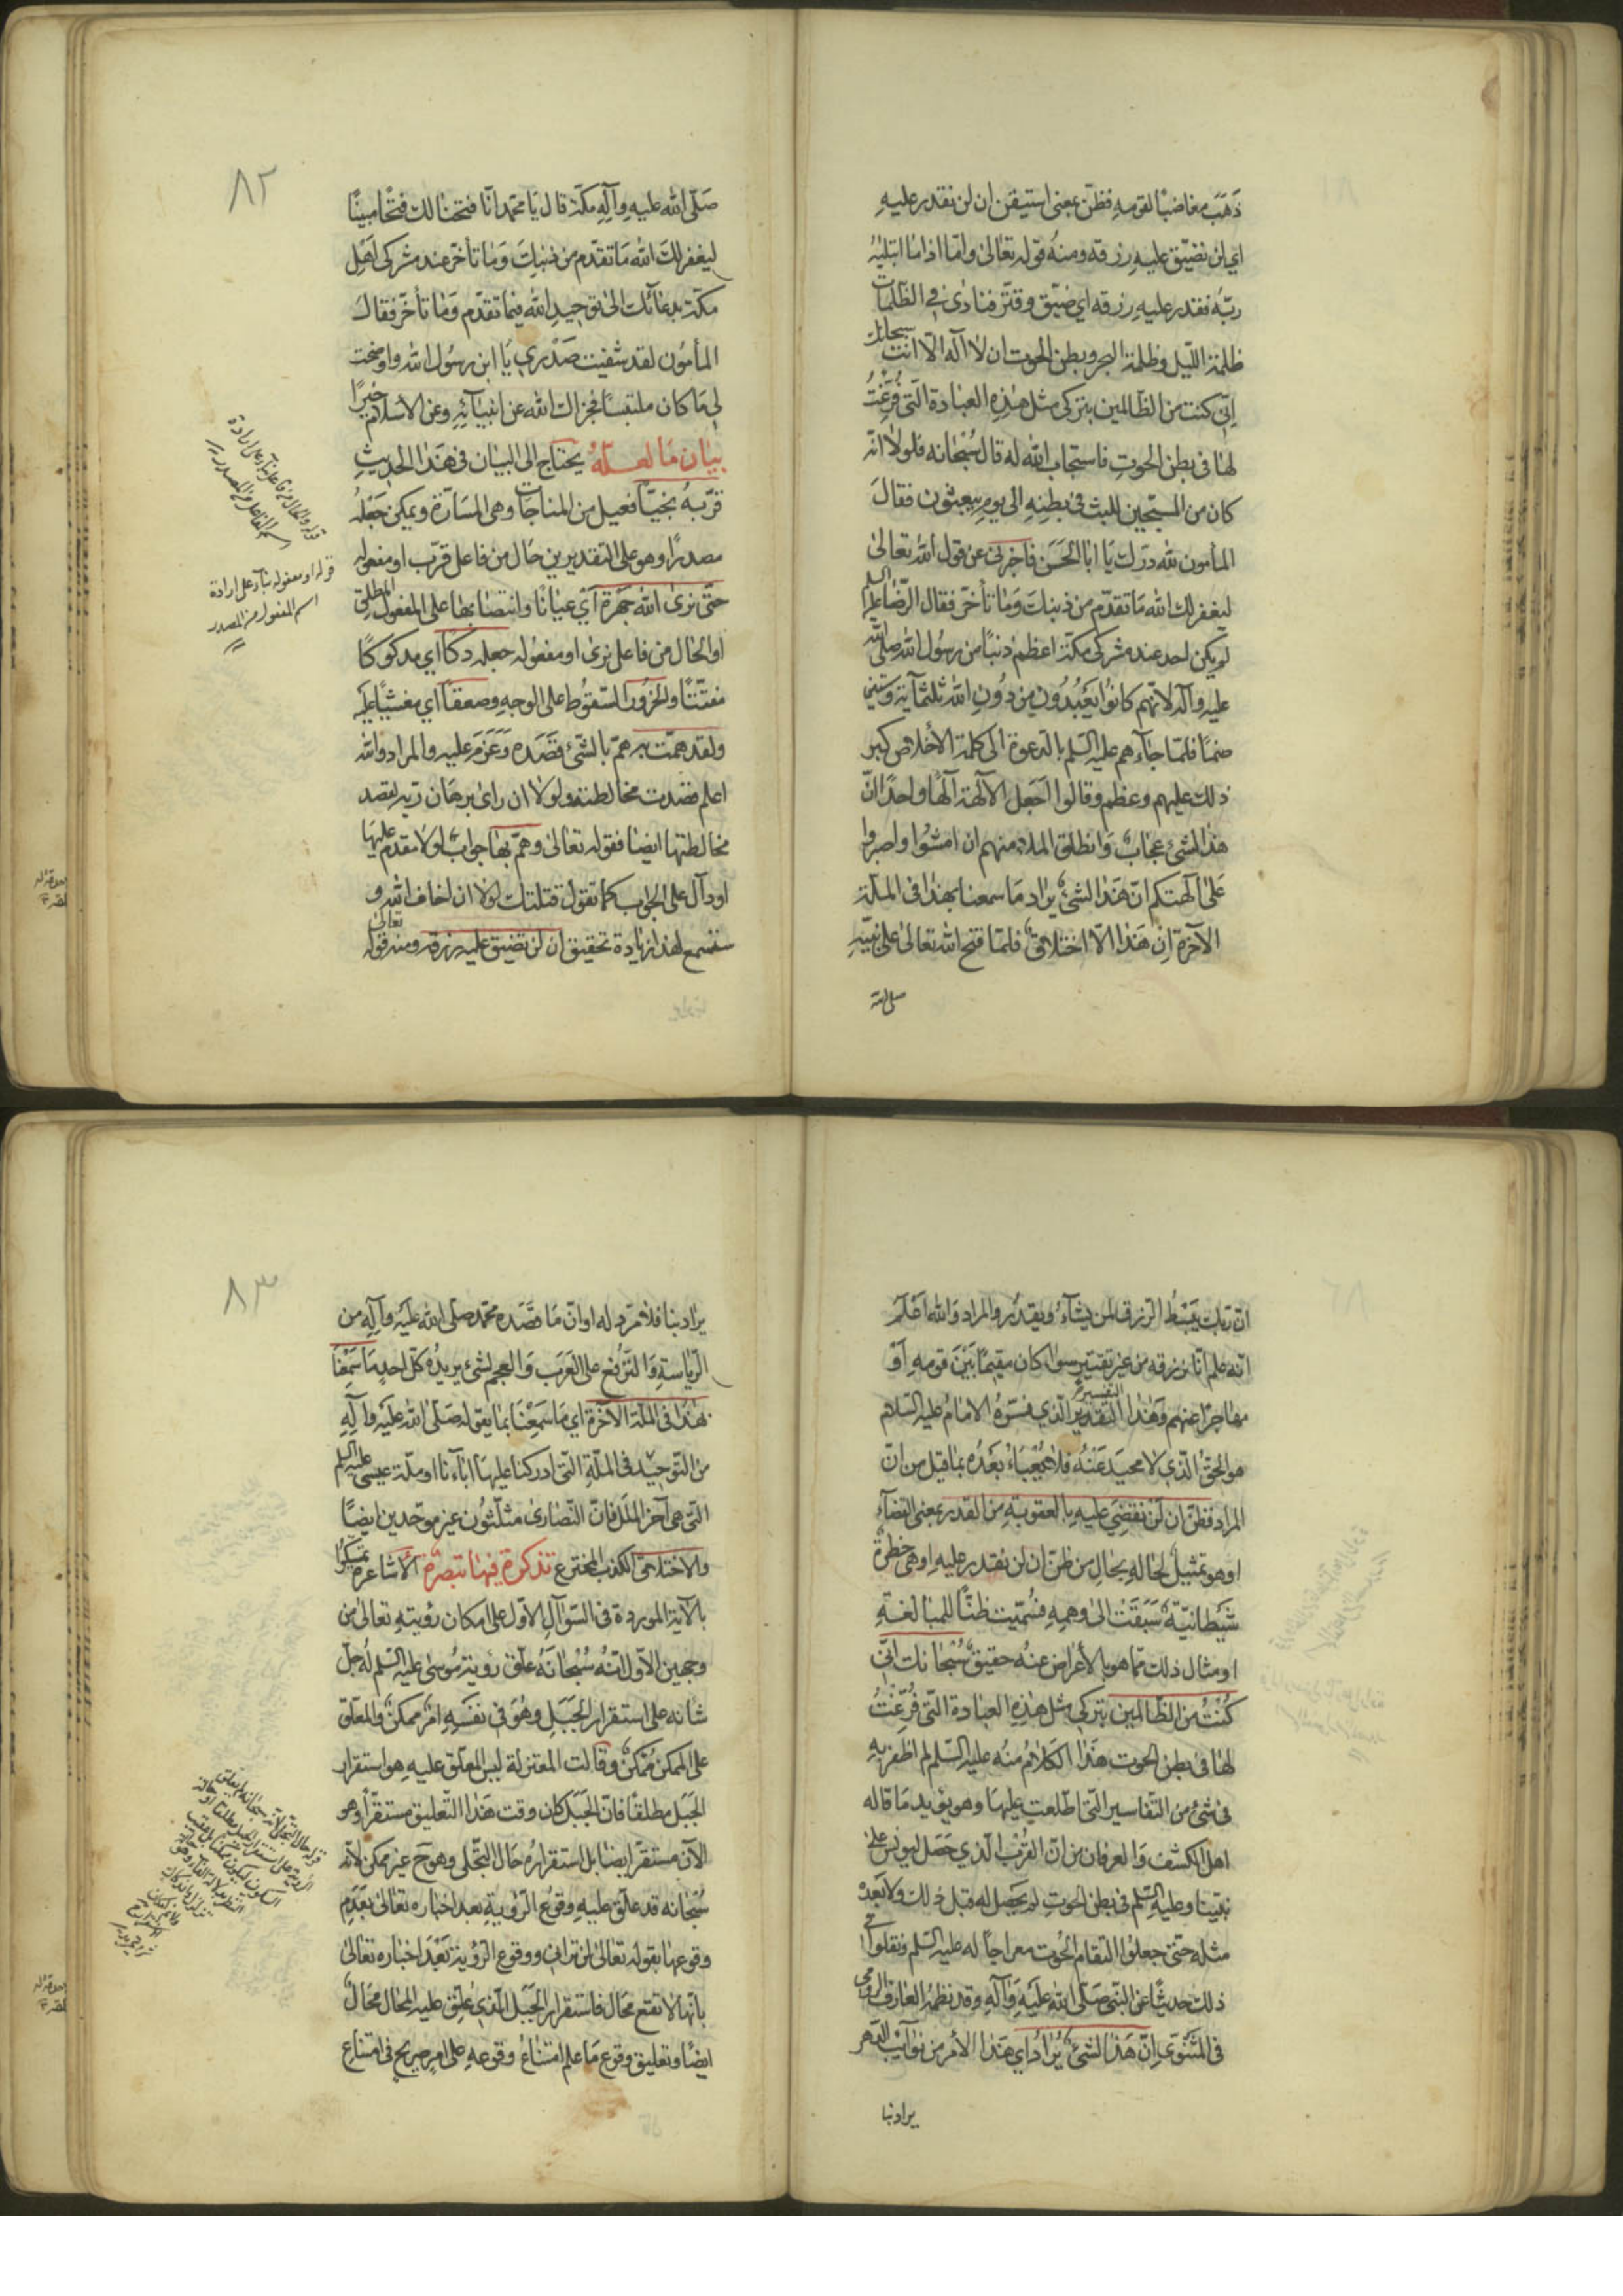 ذَهَبَ مغاضبًا لقومه فظنّ بمعنى استيقن ان لن نقدر عليه
اي لن نضيّق عليه رزقه ومنه قوله تعالى وامّا اذا ما ابتليه
ربّه فقدر عليه رزقه اي ضيّق وقتّر فنادى في الظّلمات
ظلمة اللّيل وظلمة البحر وبطن الحوت ان لا اله الّا انت سبحانك
انّي كنت من الظّالمين بتركي مثل هذه العبادة التّي فُرِّغْتُ
لها في بطن الحوت فاستجاب الله له قال سُبْحانه فلولا انّه
كان من المسبّحين للبث في بطنه الى يوم يبعثون فقالَ
المأمون لله درّك يا ابا الحَسَن فاخبرني عن قول الله تعالى
ليغفر لك الله ما تقدّم من ذنبك وَما تأخّر فقال الرّضا عليه السلم
لم يكن لاحد عند مشركي مكّة اعظم ذنبًا من رسُول الله صلى الله
عليه وآله لانّهم كانُوا يَعْبُدُون من دُونِ الله ثلثمآئة وستين
صنمًا فلمّا جآءهم عليه السّلم بالدعوة الى كلمة الأخلاص كبر
ذلك عليهم وعظم وقالوا اجَعل الآلهة آلهًا واحدًا انّ
هذا لشئ عجابٌ وَانطلق الملاء منهم ان امشُوا واصبروا
عَلى آلهتكم انّ هَذا لشئٌ يراد مَا سمعنا بهذا في الملّة
الآخرة اِن هَذا الّا اختلاقٌ فلمّا فتح الله تعالى على نبيّهِ
صلى الله
٨٢
صَلّى الله عليهِ وآلِهِ مكّة قال يَا محمّد انّا فتحنا لك فتحًا مبينًا
ليغفر لكَ الله مَا تقدّم من ذنبك وَمَا تأخّر عند مشركي اَهْل
مكّة بدعائك الى توحيدِ الله فيما تقدّم وَمَا تأخّر فقالَ
المأمُون لقد شفيت صَدْري يَا ابن رسُول الله واوضحت
لي مَا كان ملتبسًا فجزاك الله عن انبيآئِهِ وعن الاسلام خيرًا
بيان مَا لعلّهُ يحتاج الى البيان في هَذا الحديثِ
قرّبهُ نجيًّا فعيل من المناجات وهى المسَارّة ويمكن جَعْلُه
مصدرًا وهو على التقديرين حَال من فاعل قرّب او مفعوله
حتّى نرى الله جهْرةً اَيْ عيانًا وانتصابها على المفعول المطلق
او الحال من فاعل نرى او مفعوله جعله دكّا اي مدكوكًا
مفتّتًا والخرُور السّقوُط على الوجهِ وصعقًا اي مغشيًّا عليه
ولقد همّت به همّ بالشّئ قَصَدَه وَعَزَمَ عليه والمراد والله
اعلم قصدت مخالطته ولولا ان راى برهان ربّه لقصد
مخالطتها ايضًا فقوله تعالى وهمّ بها جواب لولا مقدم عليها
او دآلّ على الجواب كما تقول قتلتك لولا ان اخاف الله و
ستسمع لهذا زيادة تحقيق ان لن نضيق عليه رزقه ومنه قوله تعالى
قوله او مفعوله بناء على ارادة
اسم المفعول من المصدر
انّ ربّك يَبْسُطُ الرّزق لمن يشآءُ ويقدُر والمراد وَالله اَعْلَم
انّه علم انّا نرزقه من غير تقتيرٍ سوآء كان مقيمًا بَيْنَ قومه اَوْ
مهاجرًا عنهم وَهَذا التّفسير الّذي فسّرهُ الامامُ عليه السّلام
هو الحقّ الّذي لا محيدَ عَنْهُ فلا يُعْبَاءُ بَعْدَهُ بما قيل من انّ
المراد فظنّ ان لَن نقضِيَ عليه بالعقوبة من القدر بمعنى القضآء
او هو تمثيل لحاله بحال من ظنّ ان لن نقدر عليه او هى خطرةٌ
شَيْطانيّة سَبَقَتْ الى وهمِهِ فسُمّيت ظنًّا للمبالغة
او مثال ذلك ممّا هو بالأعراض عنه حقيقٌ سُبْحانك انّي
كُنْتُ من الظّالمين بتركي مثل هذه العبادة التّي فُرِّغْتُ
لها في بطن الحوت هَذا الكلام منه عليه السّلم لم اظفر به
في شئ من التّفاسير التّي اطّلعت عليها وهو يؤيد مَا قاله
اهل الكشف وَالعرفان من انّ القُرْبَ الّذي حَصَل ليونس على
نبيّنا وعليه السّلم في بطن الحوت لم يحصل له قبل ذلك ولا بَعْدَهُ
مثله حتّى جعلوا التقام الحُوت معراجًا له عليه السّلم ونقلوا في
ذلك حديثًا عن النبّي صَلّى الله عَلَيْهِ وَآلهِ وقد نظمَهُ العارف الرومي
في المَثْنَوي انّ هَذا لشئٌ يُرَادُ اي هَذا الأمر من نوآئب الدّهر
يراد بنا
٨٣
يراد بنا فلا مردّ له او انّ مَا قصَدَه محمّد صلّى الله عليه وآله من
الرّياسةِ وَالتّرفُع على العَرَبَ وَالعجم لشئ يريدُه كلّ احدٍ مَا سَمِعْنا
بهَذا في الملّة الآخرة اي مَا سَمِعْنا بما يقوله صَلّى الله عَلَيْهِ وآلِهِ
من التّوحيْد في الملّةِ التّي ادركنا عليها آباءنا او ملّة عيسى عليه السلم
التّي هى آخر الملل فانّ النّصارى مثلّثون غير موحّدين ايضًا
والاختلاق الكذب المخترع تذكرة فيها تبصرة الأشاعرة تمسّكوُا
بالآية الموردة في السّؤال الاوّل على امكان رؤيته تعالى من
وجهين الأوّل انّه سُبْحَانَهُ علّق رؤية مُوسى عليه السّلم لهُ جلّ
شانه على استقرار الجَبَلِ وهُوَ في نفسِهِ امرٌ ممكنٌ والمعلّق
على الممكن مُمْكنٌ وقالت المعتزلة ليس المعلّق عليه هو استقرار
الجَبَل مطلقًا فانّ الجَبَل كان وقت هَذا التّعليق مستقرًّا وهو
الآن مستقرّ ايضًا بل استقرارهُ حَال التّجلّى وهو ح غير ممكن لانّه
سُبْحانه قد علّق عليه وقوع الرّؤيةِ بعد اخباره تعالى بعَدَم
وقوعها بقوله تعالى لن تراني ووقوع الرّؤية بَعْدَ اخباره تعالى
بانّها لا تقع محَال فاستقرار الجَبَل الّذي عُلّق عليه المحال محَالٌ
ايضًا وتعليق وقوع مَا علم امتناعُ وقوعه على امرٍ صريح في امتناع